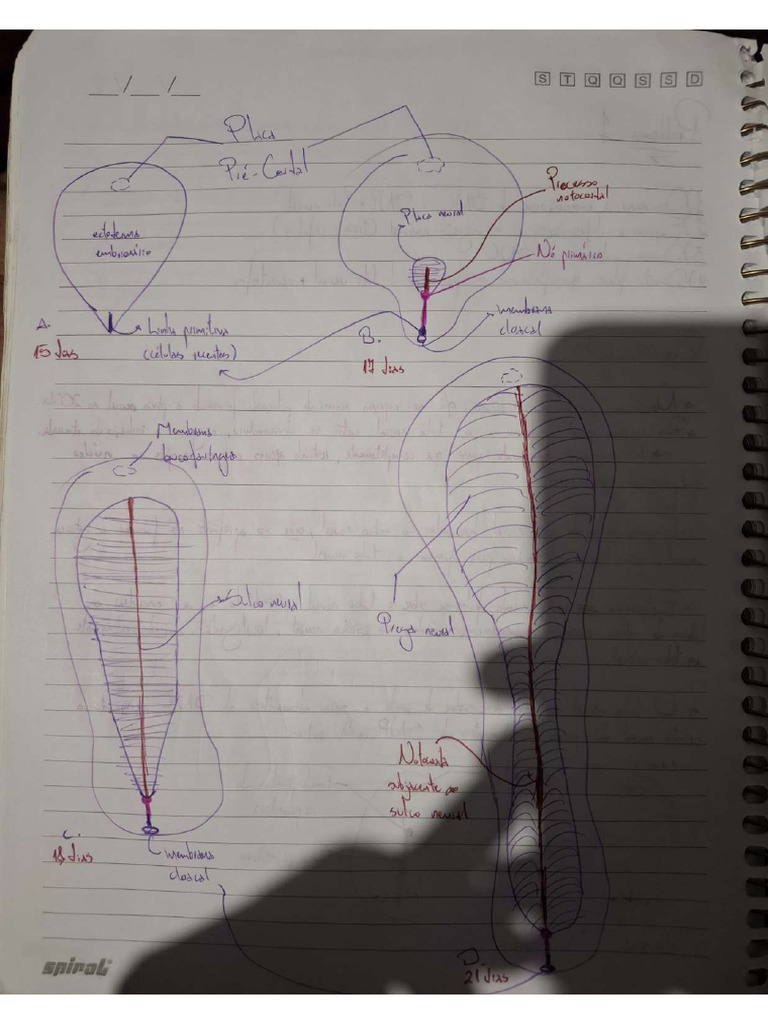 __/__/__
S T Q Q S S D
Placa
Pré-Cordal
ectoderma
embrionário
Linha primitiva
(células recentes)
A.
15 dias
Placa neural
Processo
notocordal
Nó primário
membrana
cloacal
B.
17 dias
Membrana
bucofaríngea
Sulco neural
C.
18 dias
membrana
cloacal
Prega neural
Notocorda
subjacente ao
sulco neural
D.
21 dias
spiral